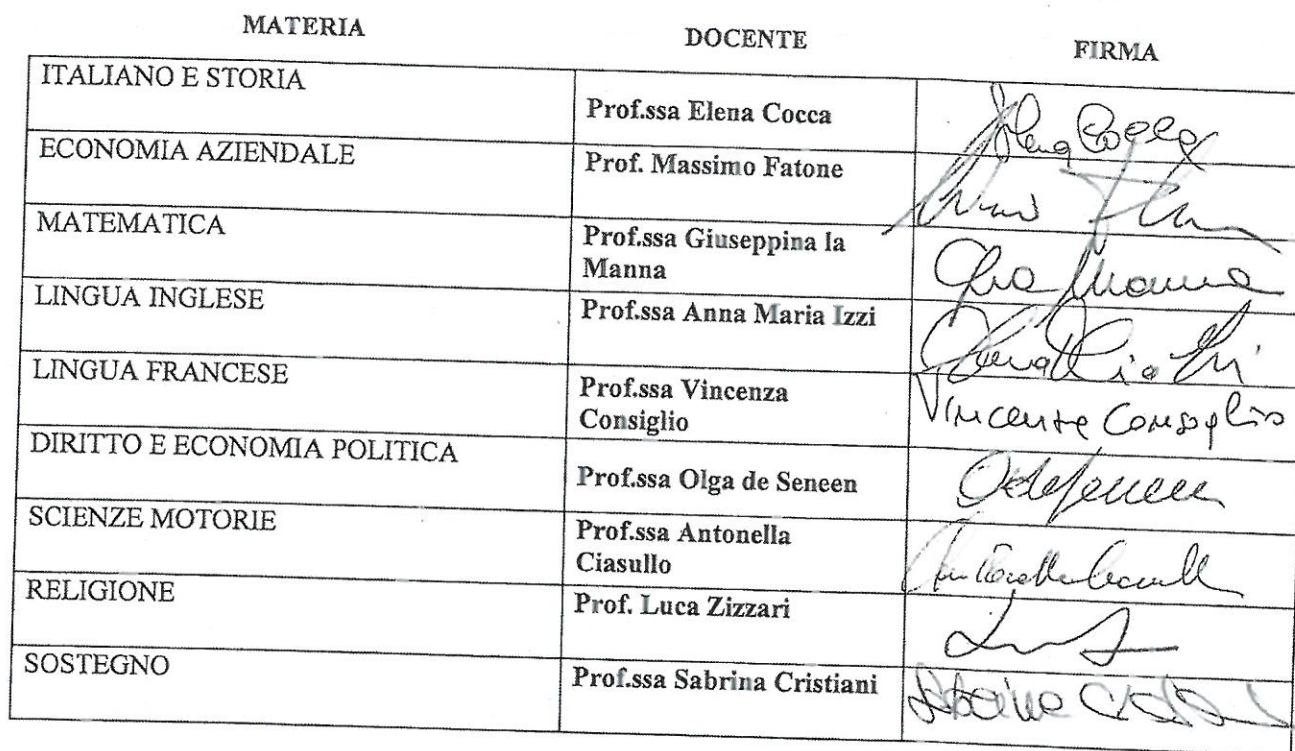 MATERIA DOCENTE FIRMA
ITALIANO E STORIA
Prof.ssa Elena Cocca
Elena Cocca
ECONOMIA AZIENDALE
Prof. Massimo Fatone
MATEMATICA
Prof.ssa Giuseppina la
Manna
LINGUA INGLESE
Prof.ssa Anna Maria Izzi
LINGUA FRANCESE
Prof.ssa Vincenza
Consiglio
DIRITTO E ECONOMIA POLITICA
Prof.ssa Olga de Seneen
SCIENZE MOTORIE
Prof.ssa Antonella
Ciasullo
RELIGIONE
Prof. Luca Zizzari
SOSTEGNO
Prof.ssa Sabrina Cristiani